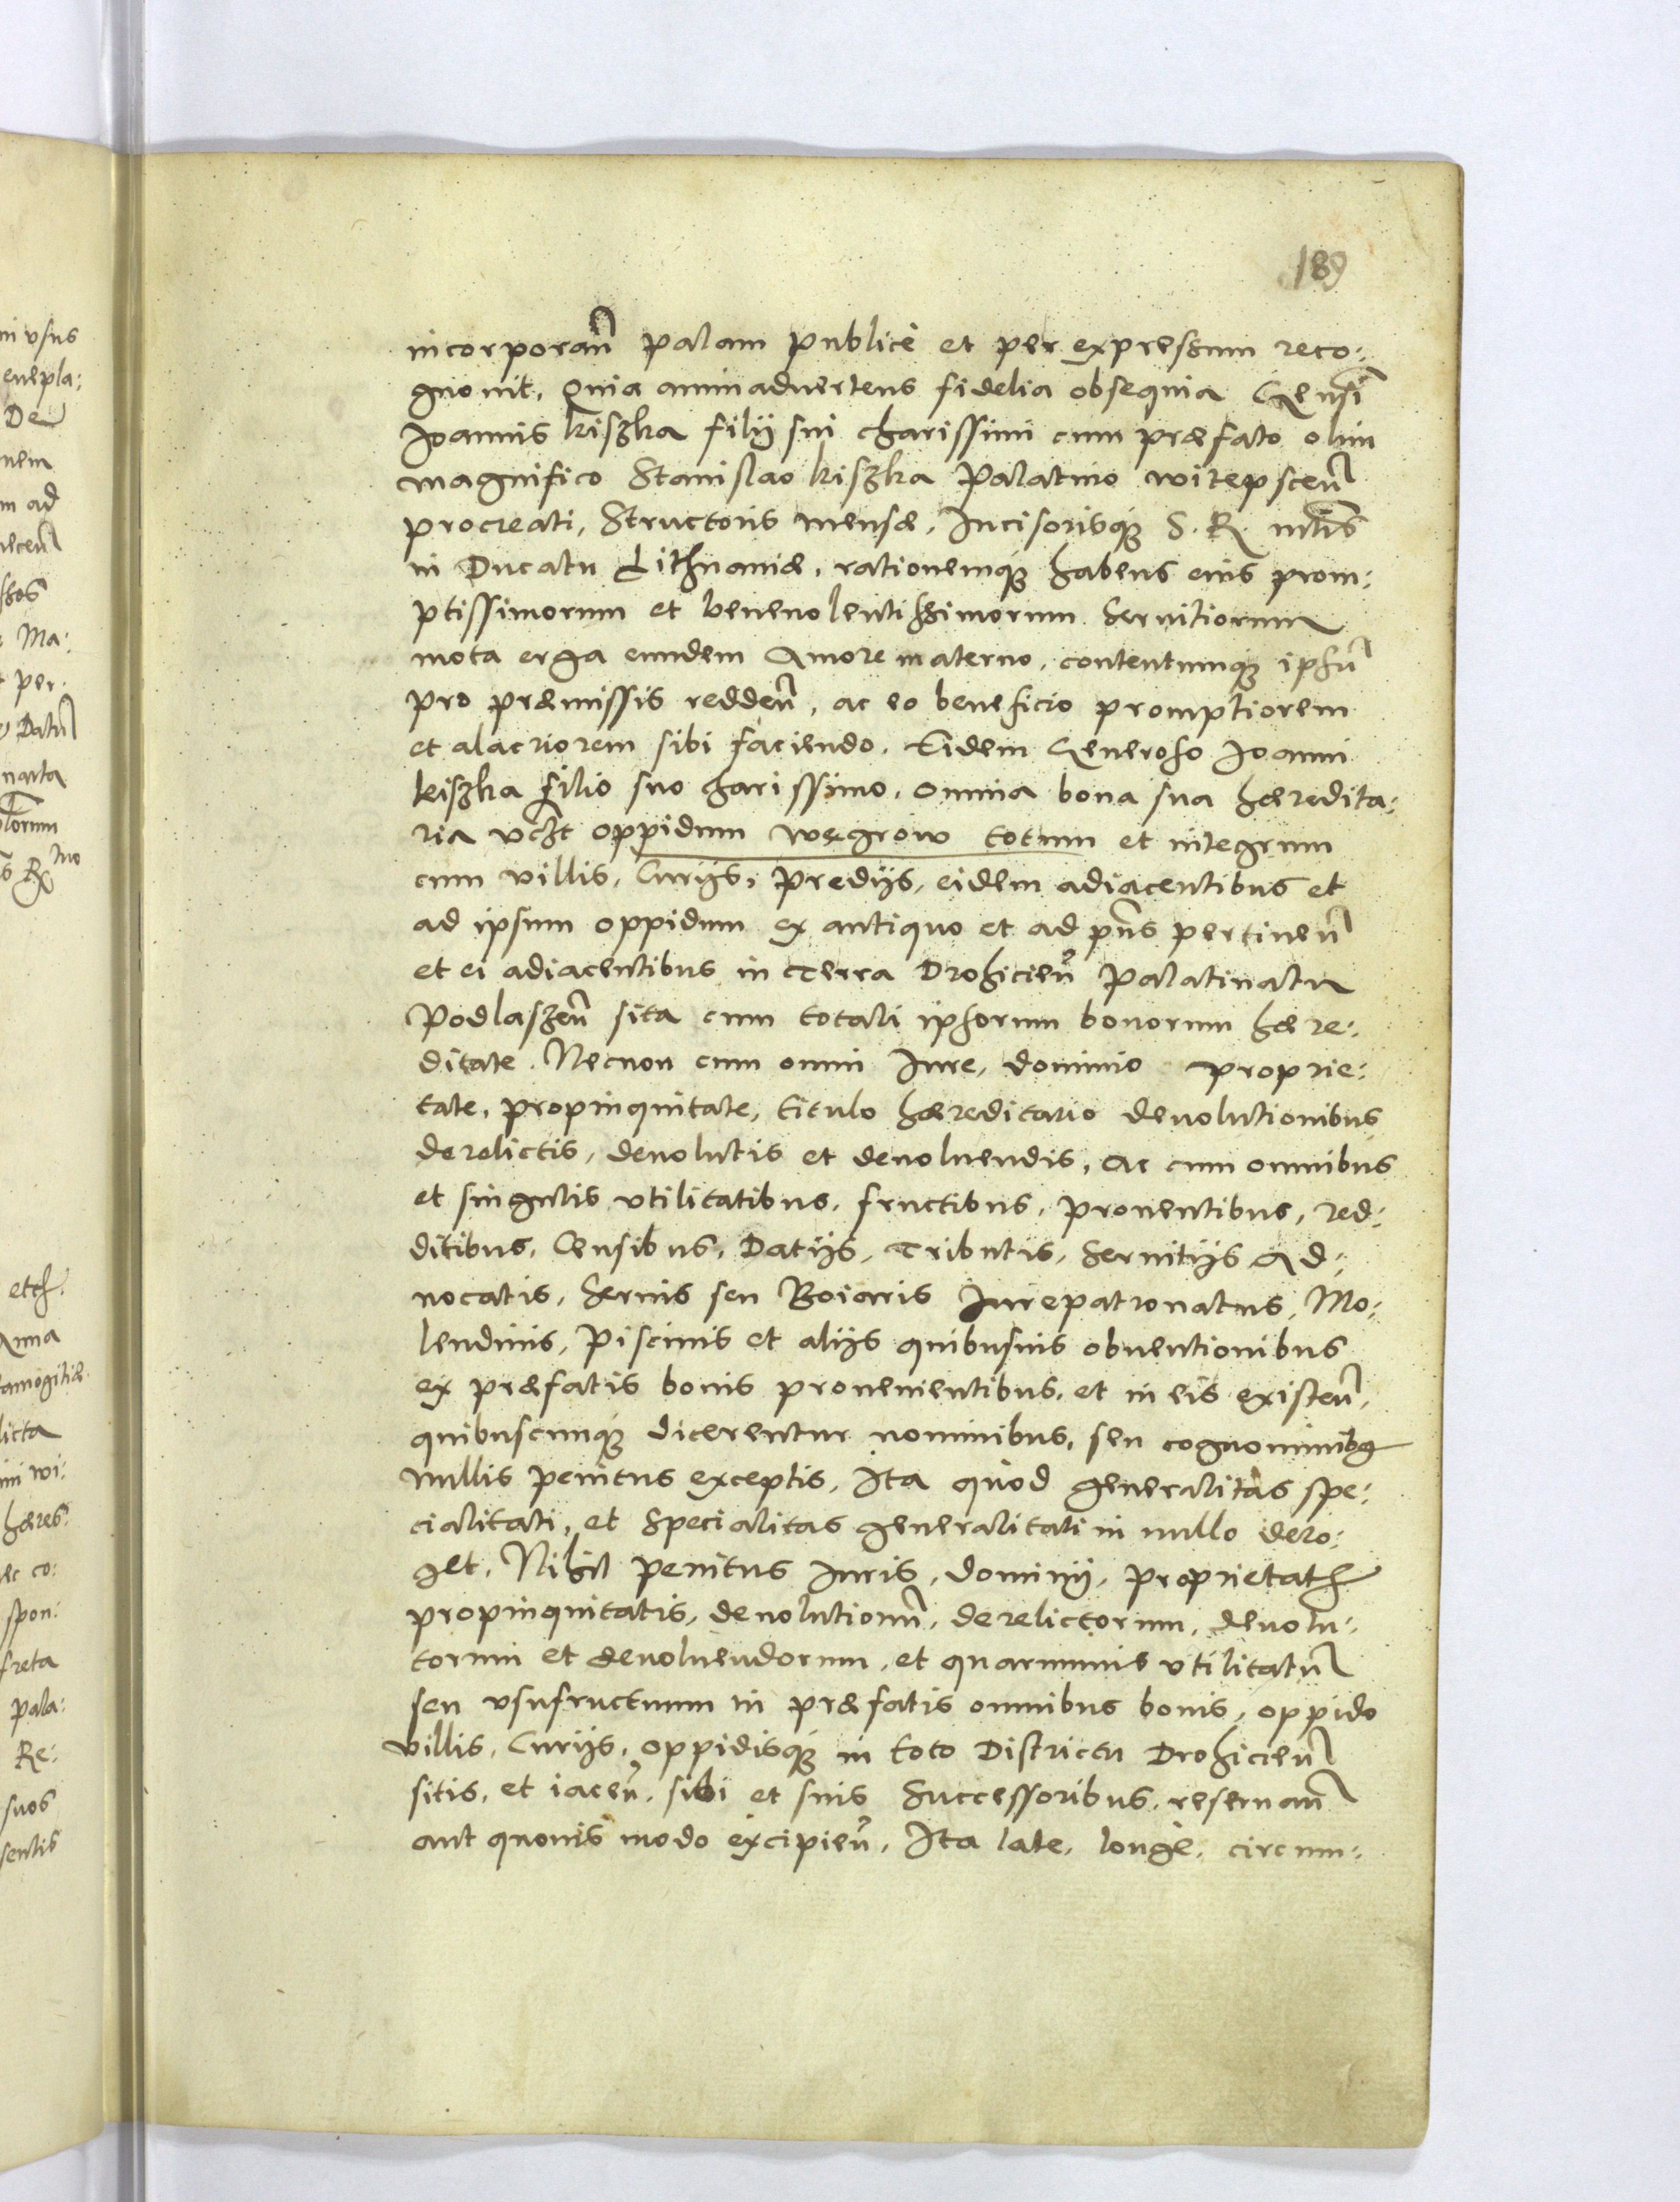 189
incorporan̄ palam publicè et per expressum reco:
gnouit, Quia animaduertens fidelia obsequia Gensi
Joannis Kiszka filij sui charissimi cum præfato olim
magnifico Stanislao Kiszka Palatino witepscen̄
procreati, Structoris mensæ, Incisorisq̃ S. R. mtis
in Ducatu Lithuaniæ, rationemq̃ habens eius prom:
ptissimorum et beneuolentissimorum Seruitiorum
mota erga eundem Amore materno, contentumq̃ ipsū
pro præmissis redden̄, ac eo beneficio promptiorem
et alacriorem sibi faciendo. Eidem Generoso Joanni
kiszka filio suo charissimo, omnia bona sua hæredita:
ria vczt oppidum węgrow totum et integrum
cum villis, Curijs, prędijs, eidem adiacentibus et
ad ipsum oppidum ex antiquo et ad pn̄s pertinen̄
et ei adiacentibus in Terra Drohicien̄ Palatinatu
Podlaszen̄ sita cum totali ipsorum bonorum hære:
ditate. Necnon cum omni Jure, dominio proprie:
tate, propinquitate, titulo hæreditario deuolutionibus
derelictis, deuolutis et deuoluendis, Ac cum omnibus
et singulis vtilitatibus, fructibus, prouentibus, red:
ditibus, Censibus, Datijs, Tributis, Seruitijs Ad:
uocatis, Seruis seu Boiaris Jurepatronatus, Mo:
lendinis, Piscinis et alijs quibusuis obuentionibus
ex præfatis bonis prouenientibus, et in eis existen̄,
quibuscunq̃ dicerentur nominibus, seu cognominibq
nullis penitus exceptis, Ita quod generalitas spe:
cialitati, et Specialitas generalitati in nullo dero:
get, Nihil penitus Juris, dominij, proprietatꝭ
propinquitatis, deuolutionū, derelictorum, deuolu:
torum et deuoluendorum, et quarumuis vtilitatū
seu vsufructuum in præfatis omnibus bonis, oppido
villis, Curijs, oppidisq̃ in toto Districtu Drohicien̄
sitis, et iacen̄, sibi et suis Successoribus, reseruan̄
aut quouis modo excipien̄, Ita late, longè, circum: